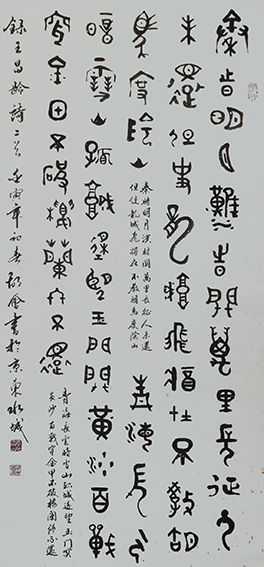 秦時明月漢時關萬里長征人
未還但使龍城飛將在不教胡
馬度陰山
秦時明月漢時關萬里長征人未還
但使龍城飛將在不教胡馬度陰山
青海長雲
暗雪山孤城遙望玉門關黃沙百戰
穿金甲不破樓蘭終不還
青海長雲暗雪山孤城遙望玉門關
黃沙百戰穿金甲不破樓蘭終不還
錄王昌齡詩二首壬寅年初春會書於京東水城